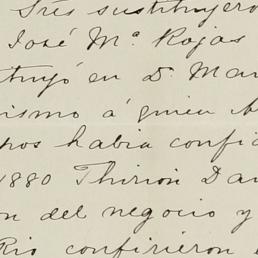 Sres sustituyero
José Mª Rojas
tituyó en D. Man
mismo á quien
nos habia confi
1880 Thirion Da
n del negocio y
Rio confirieron